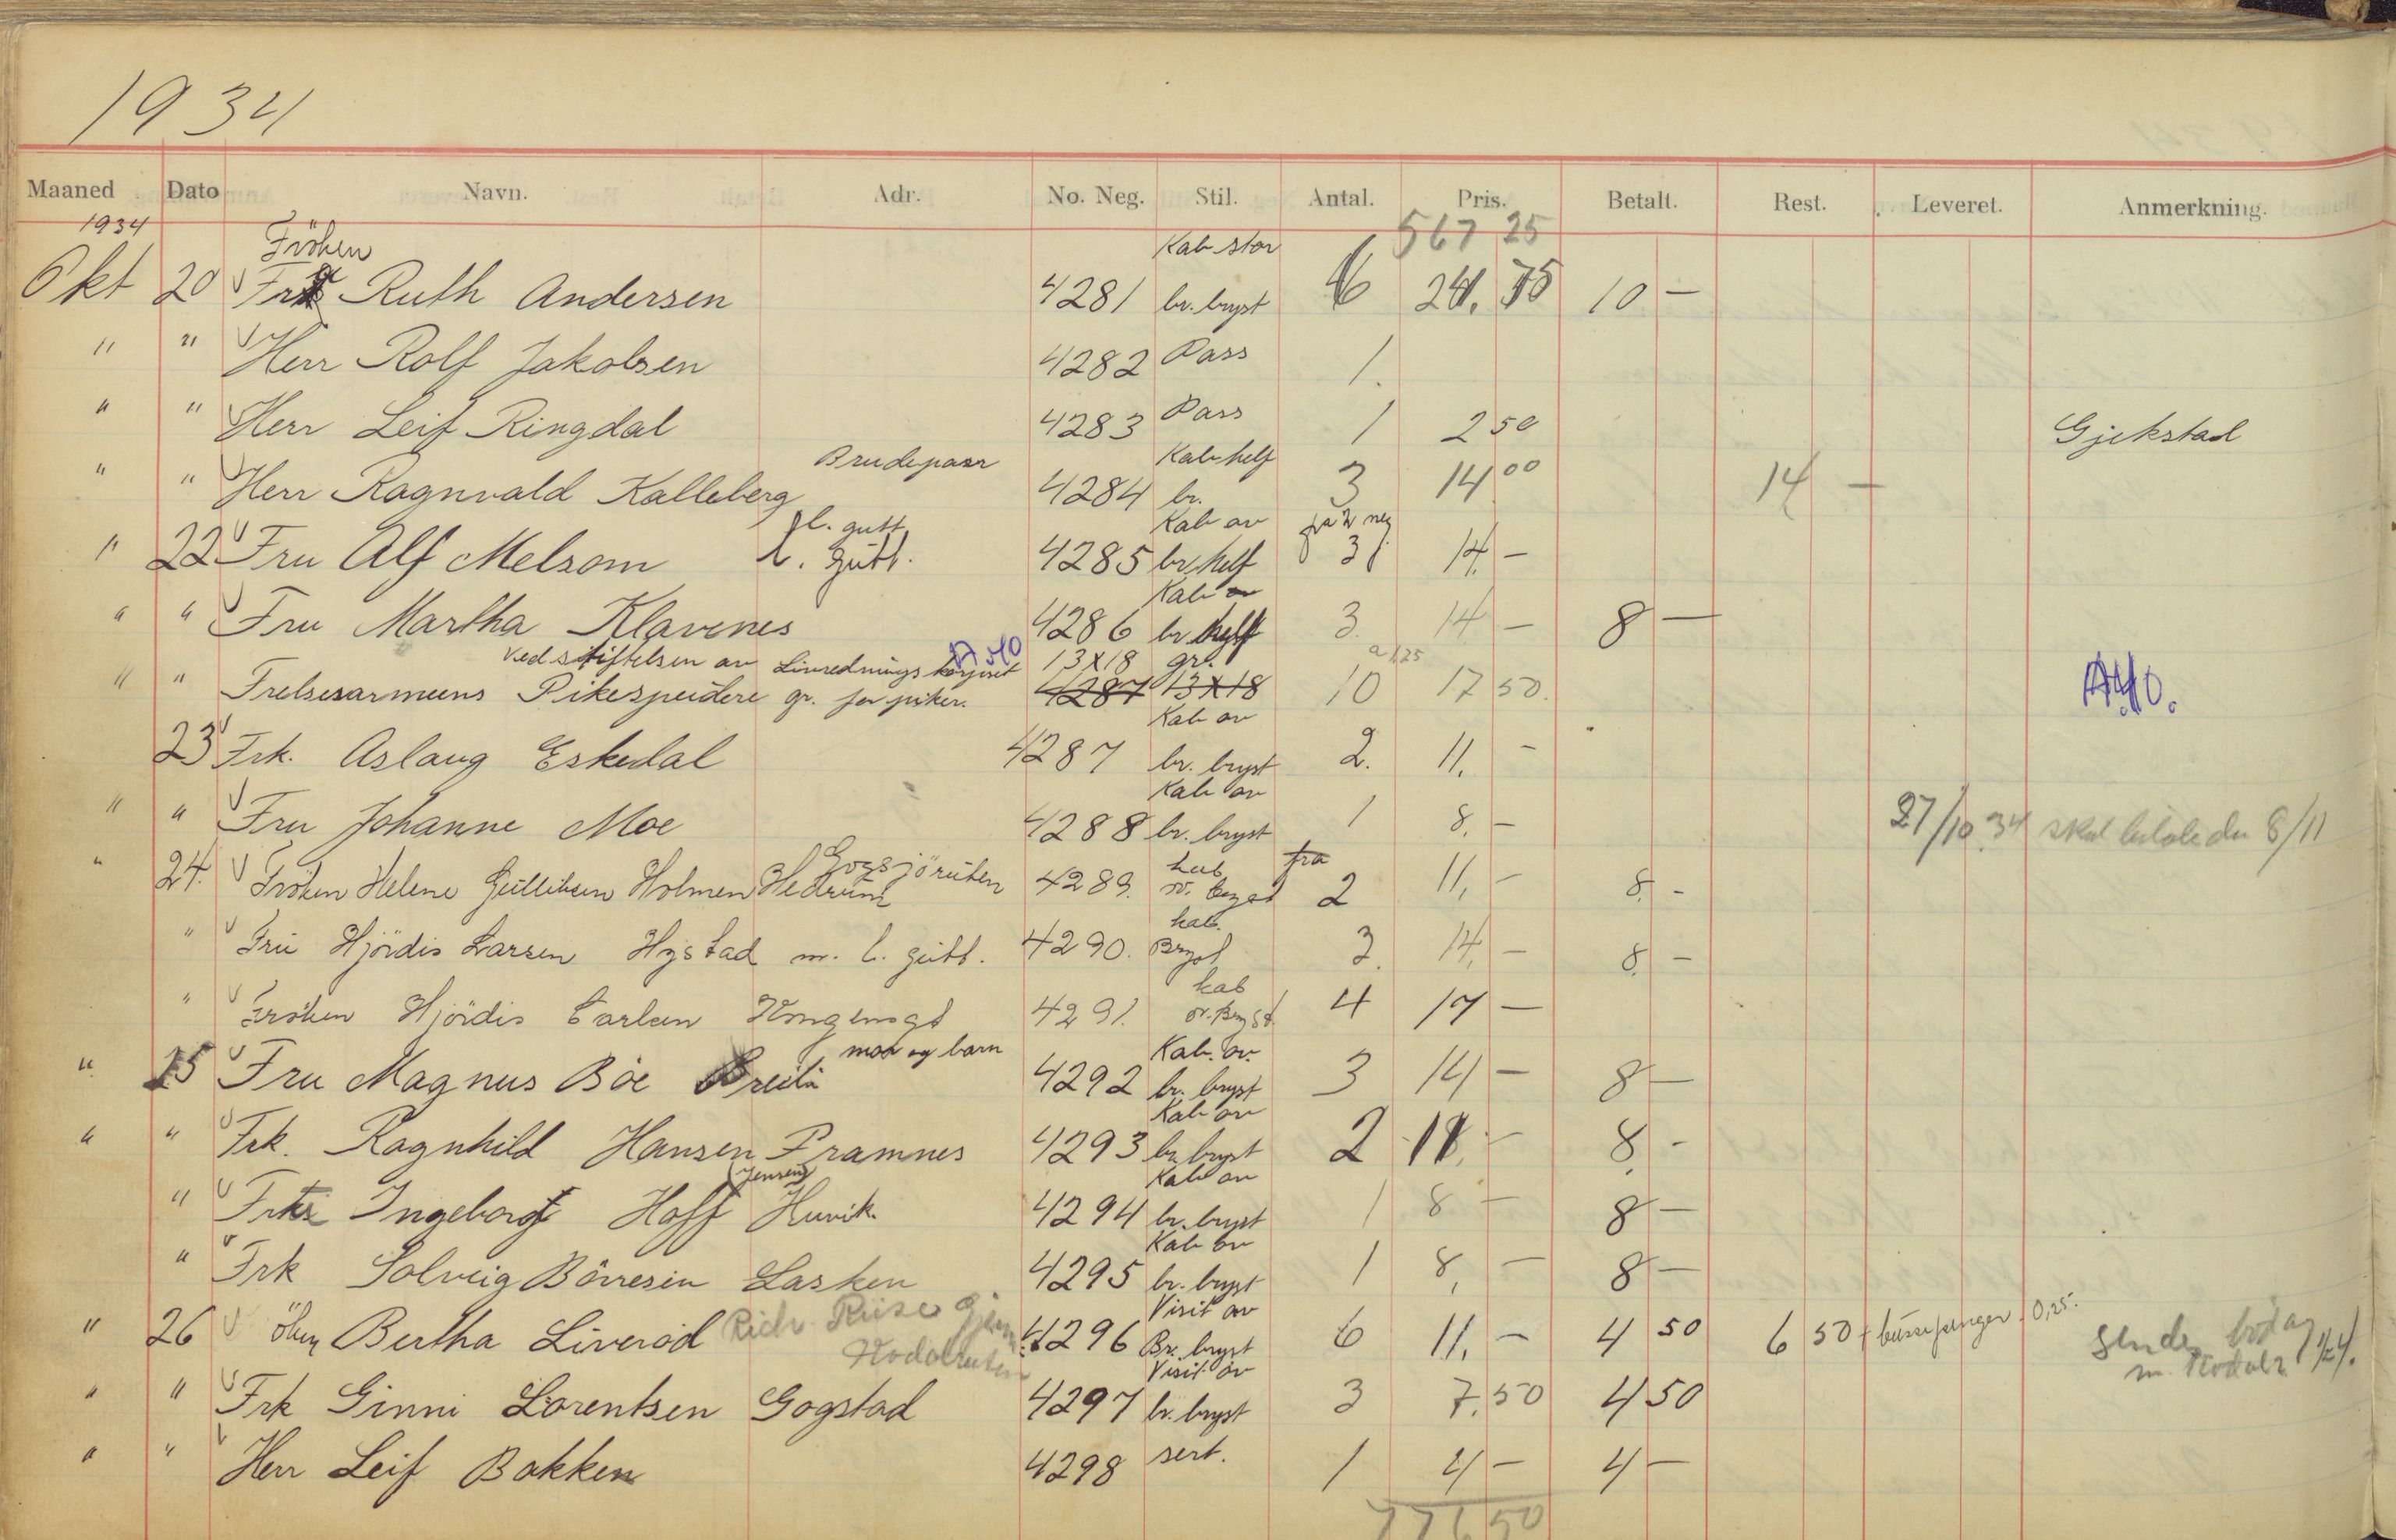 1934
Maaned Dato Navn. Adr. No. Neg. Stil. Antal. Pris. Betalt. Rest. Leveret. Anmerkning.
1934 567 25
Fröken Kab stor
Okt 20 Ruth Andersen 4281 br. bryst 6 24. 75 10 —
" " Herr Rolf Jakobsen 4282 Pass 1.
" " Herr Leif Ringdal 4283 Pass 1 2 50 Gjekstad
Brudepar Kab helf
" " Herr Ragnvald Kalleberg 4284 br. 3 14 00 14 —
l. gutt Kab av fra 2 neg
" 22 Fru Alf Melsom l. gutt. 4285 br helf 3 14. —
Kab
" " Fru Martha Klavenes 4286 br helf 3. 14 — 8 —
Ved stiftelsen av Livredningskorpset 13x18 gr. a 1,25
" " Frelsesarmeens Pikespeidere gr. for piker. 4287 13x18 10 17 50. A40.
Kab av
23 Frk. Aslaug Eskedal 4287 br. bryst 2. 11. -
Kab av
" " Fru Johanne Moe 4288 br. bryst 1 8. - 27/10 34 skal betale den 8/11
Gogsjöruten kab fra
" 24. Fröken Helene Gulliksen Holmen Hedrum 4289. av. bryst 2 11, - 8. -
kab.
" Fru Hjördis Larsen Hystad m. l. gutt. 4290. Bryst 3. 14, — 8. —
kab
" Fröken Hjördis Carlsen Kongensgt 4291. av. Bryst. 4 17 —
mor og barn Kab. av.
" 25 Fru Magnus Böe 4292 br. bryst 3 14 — 8 —
Kab av
" " Frk. Ragnhild Hansen Framnes 4293 br. bryst 2 11. — 8. -
(Jensen) Kab av
" Frk Ingeborg Hoff Huvik. 4294 br. bryst 1 8 — 8 —
Kab av
" Frk Solveig Börresen Lasken 4295 br. bryst 1 8, — 8 —
Visit av
" 26 öken Bertha Liveröd Rich. Riise 4296 Br. bryst 6 11. — 4 50 6 50 + bussepenger 0,25. Sendes
Kodalruten Visit av m. Kodalr.
" " Frk Ginni Lorentsen Gogstad 4297 br. bryst 3 7.50 4 50
" " Herr Leif Bakken 4298 sert. 1 4 — 4 —
776 50